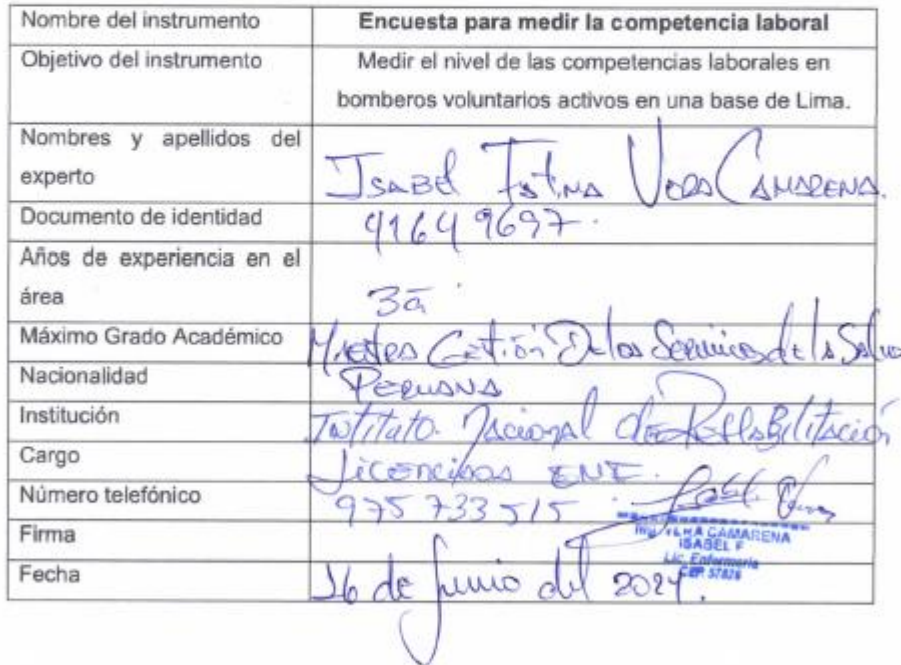 Nombre del instrumento Encuesta para medir la competencia laboral
Objetivo del instrumento Medir el nivel de las competencias laborales en
bomberos voluntarios activos en una base de Lima.
Nombres y apellidos del
experto Isabel Fatima Vera Camarena.
Documento de identidad 41649697.
Años de experiencia en el
área 3a
Máximo Grado Académico Maestra Gestión De los Servicios de la Salud
Nacionalidad Peruana
Institución Instituto Nacional de Rehabilitación
Cargo Licenciada ENF.
Número telefónico 975 733 515
Firma
CAMARENA
ISABEL F
Lic. Enfermería
CEP
Fecha 16 de Junio del 2024.